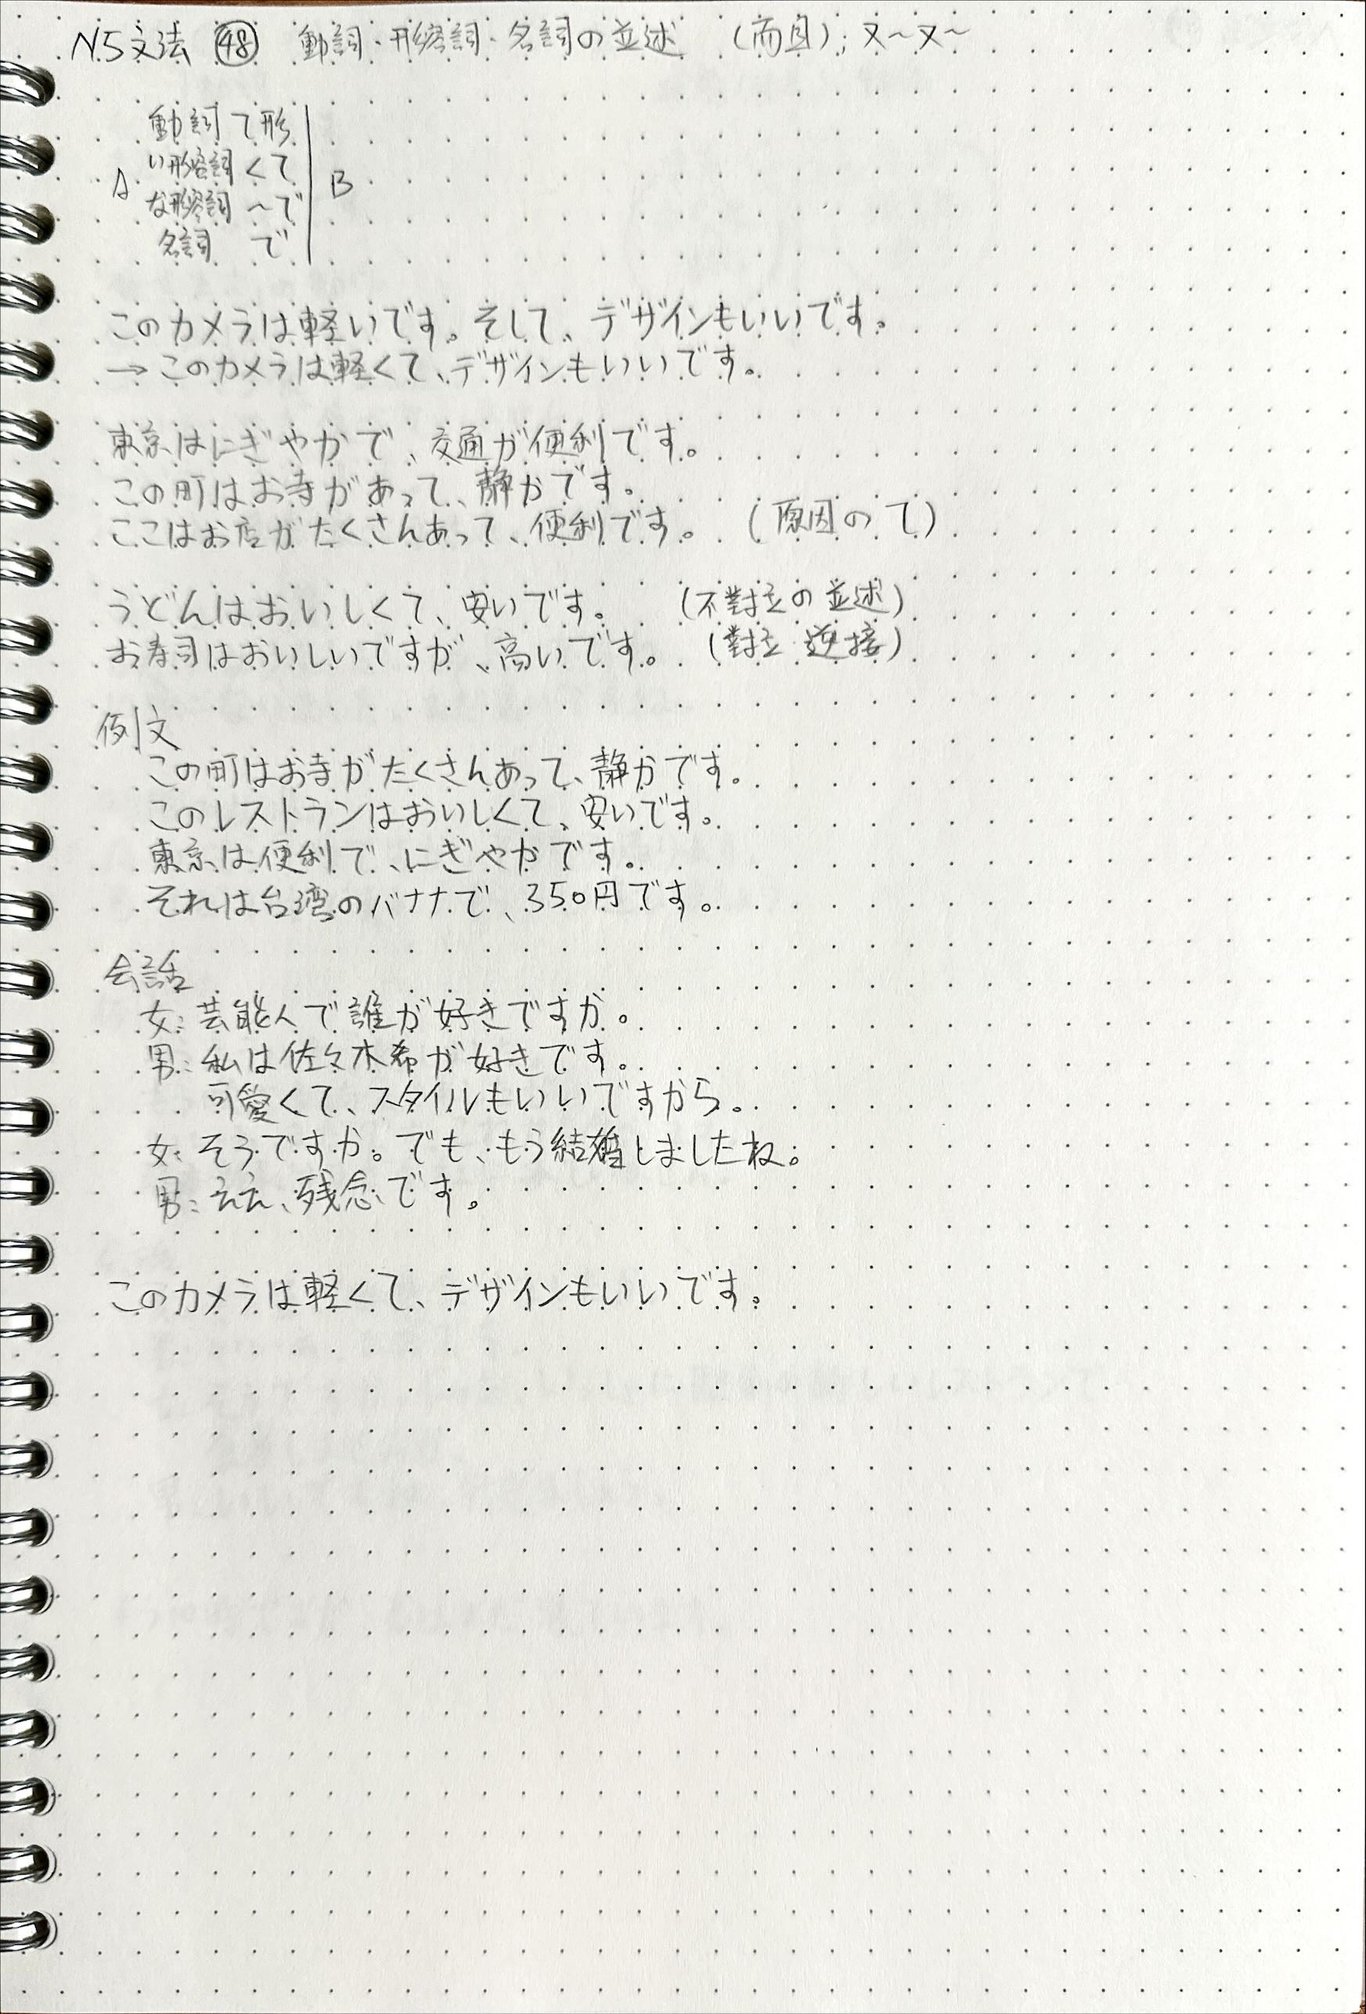 N5文法 ㊽ 動詞・形容詞・名詞の並述 (而且); 又~又~
動詞 て形
い形容詞 くて
A B
な形容詞 ~で
名詞 で
このカメラは軽いです。そして、デザインもいいです。
→このカメラは軽くて、デザインもいいです。
東京はにぎやかで、交通が便利です。
この町はお寺があって、静かです。
ここはお店がたくさんあって、便利です。 (原因のて)
うどんはおいしくて、安いです。 (不對立の並述)
お寿司はおいしいですが、高いです。 (對立 逆接)
例文
この町はお寺がたくさんあって、静かです。
このレストランはおいしくて、安いです。
東京は便利で、にぎやかです。
それは台湾のバナナで、350円です。
会話
女: 芸能人で誰が好きですか。
男: 私は佐々木希が好きです。
可愛くて、スタイルもいいですから。
女: そうですか。でも、もう結婚しましたね。
男: ええ、残念です。
このカメラは軽くて、デザインもいいです。